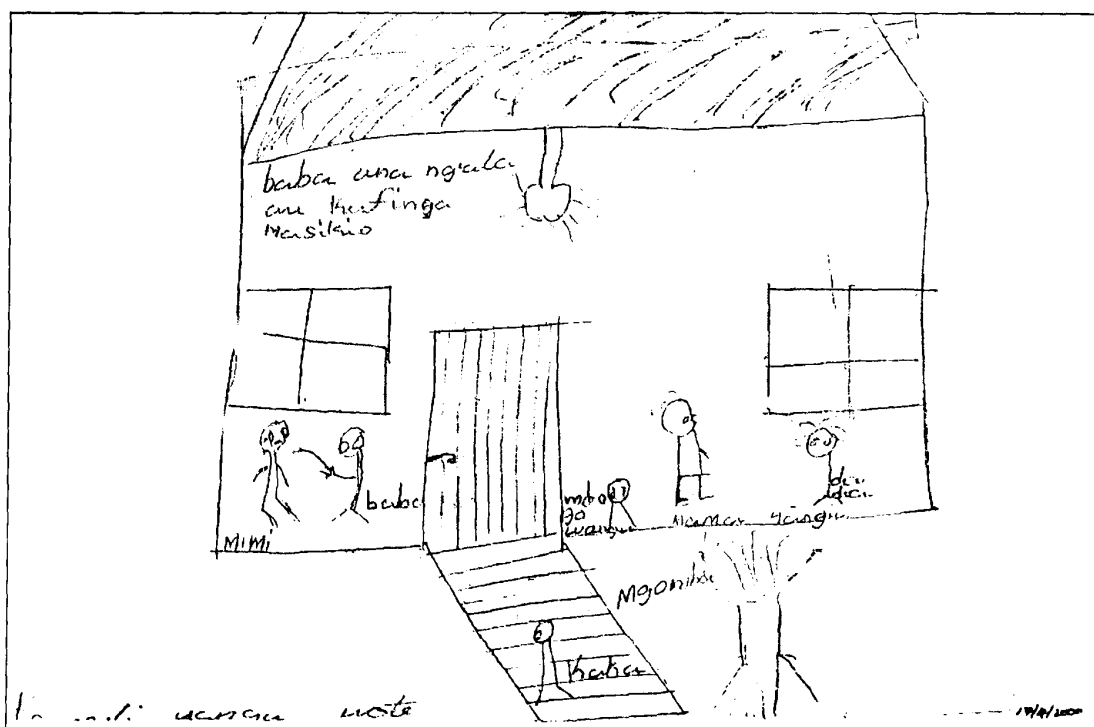 baba una ngala
au Kufinga
Masikio
Mimi
baba
mdo
go
wangu
Mama yangu
dia
dia
Mgomba
Kaka